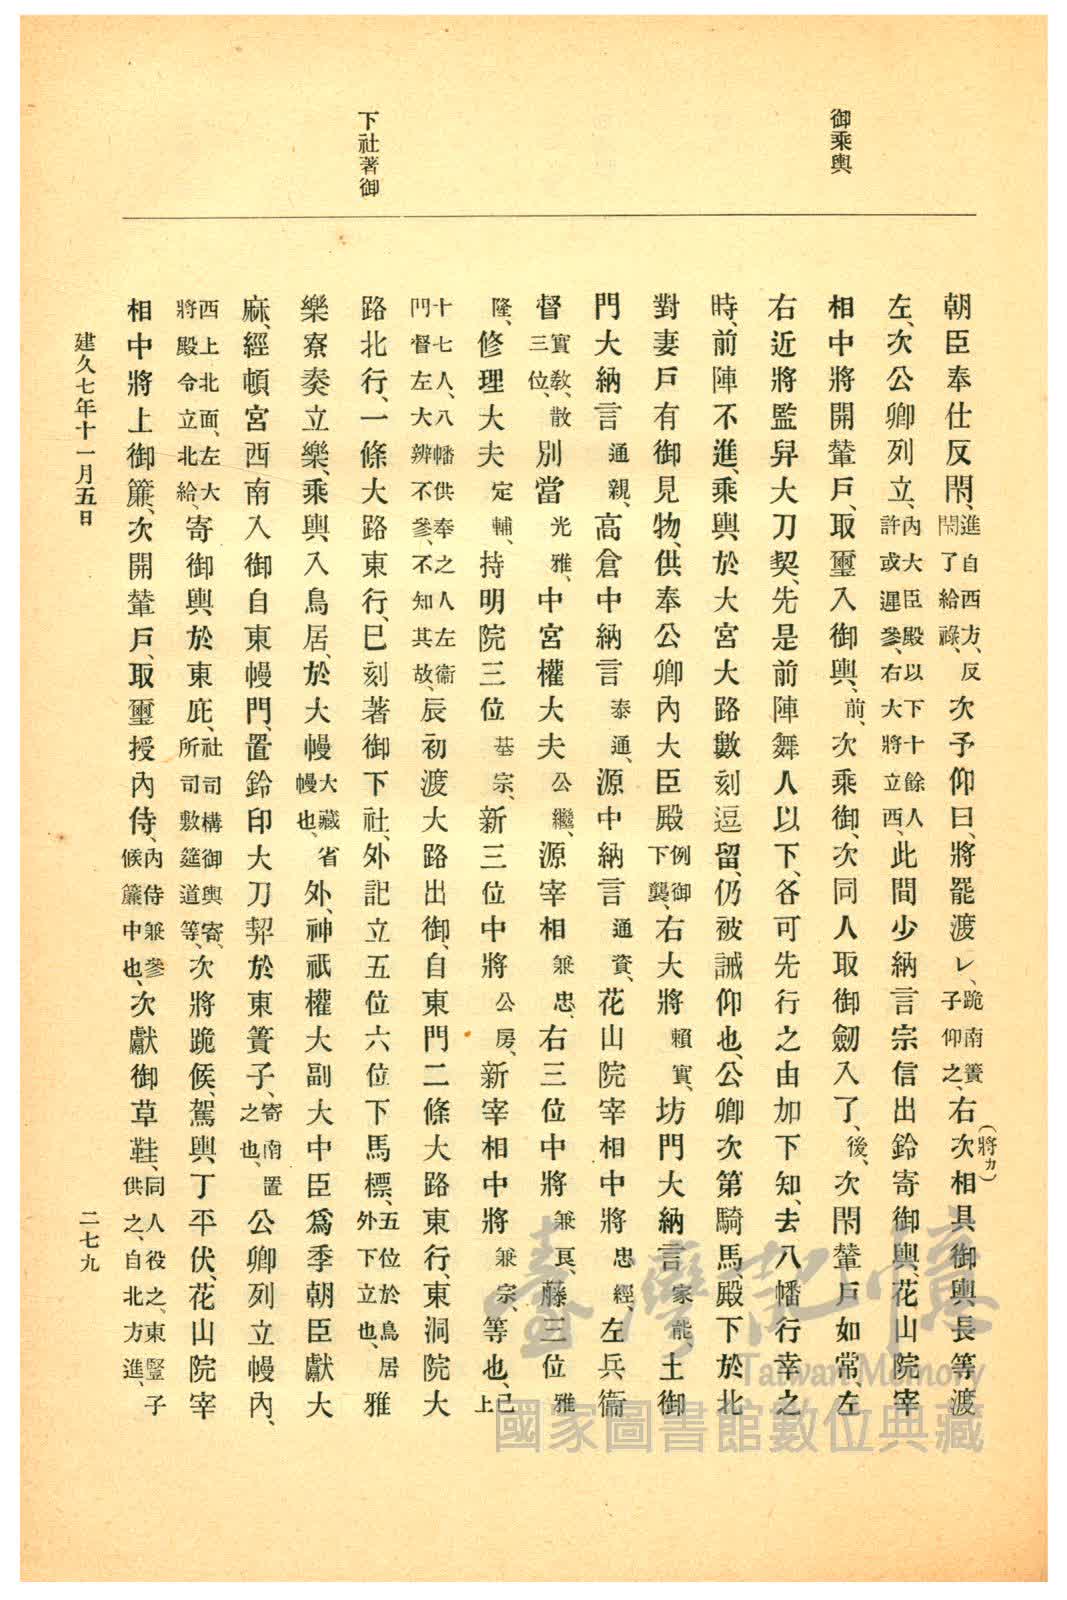 御乘輿
下社著御
朝臣奉仕反閇、進自西方、反閇了給祿、次予仰曰、將罷渡レ、跪南簀子仰之、右次(將カ)相具御輿長等渡
左、次公卿列立、內大臣殿以下十餘人許或遲參、右大將立西、此間少納言宗信出鈴寄御輿、花山院宰
相中將開輦戶、取璽入御輿、前、次乘御、次同人取御劒入了、後、次閇輦戶如常、左
右近將監舁大刀契、先是前陣舞人以下、各可先行之由加下知、去八幡行幸之
時、前陣不進、乘輿於大宮大路數刻逗留、仍被誡仰也、公卿次第騎馬、殿下於北
對妻戶有御見物、供奉公卿內大臣殿例御下襲、右大將賴實、坊門大納言家能土御
門大納言通親、高倉中納言泰通、源中納言通資、花山院宰相中將忠經、左兵衞
督實敎、散三位、別當光雅、中宮權大夫公繼、源宰相兼忠、右三位中將兼良、藤三位雅
隆、修理大夫定輔、持明院三位基宗、新三位中將公房、新宰相中將兼宗、等也、已上
十七人、八幡供奉之人左衞門督左大辨不參、不知其故、辰初渡大路出御、自東門二條大路東行、東洞院大
路北行、一條大路東行、巳刻著御下社、外記立五位六位下馬標、五位於鳥居外下立也、雅
樂寮奏立樂、乘輿、入鳥居、於大幔大藏省幔也、外、神祇權大副大中臣爲季朝臣獻大
麻、經頓宮西南入御自東幔門、置鈴印大刀契於東簀子、寄南置之也、公卿列立幔內、
西上北面、左大將殿令立北給、寄御輿、於東庇、社司構御輿寄、所司敷筵道等、次將跪候、駕輿、丁平伏、花山院宰
相中將上御簾、次開輦戶、取璽授內侍、內侍兼參候簾中也、次獻御草鞋、同人役之、東豎子供之、自北方進、
建久七年十一月五日
二七九
臺灣記憶
Taiwan Memory
國家圖書館數位典藏